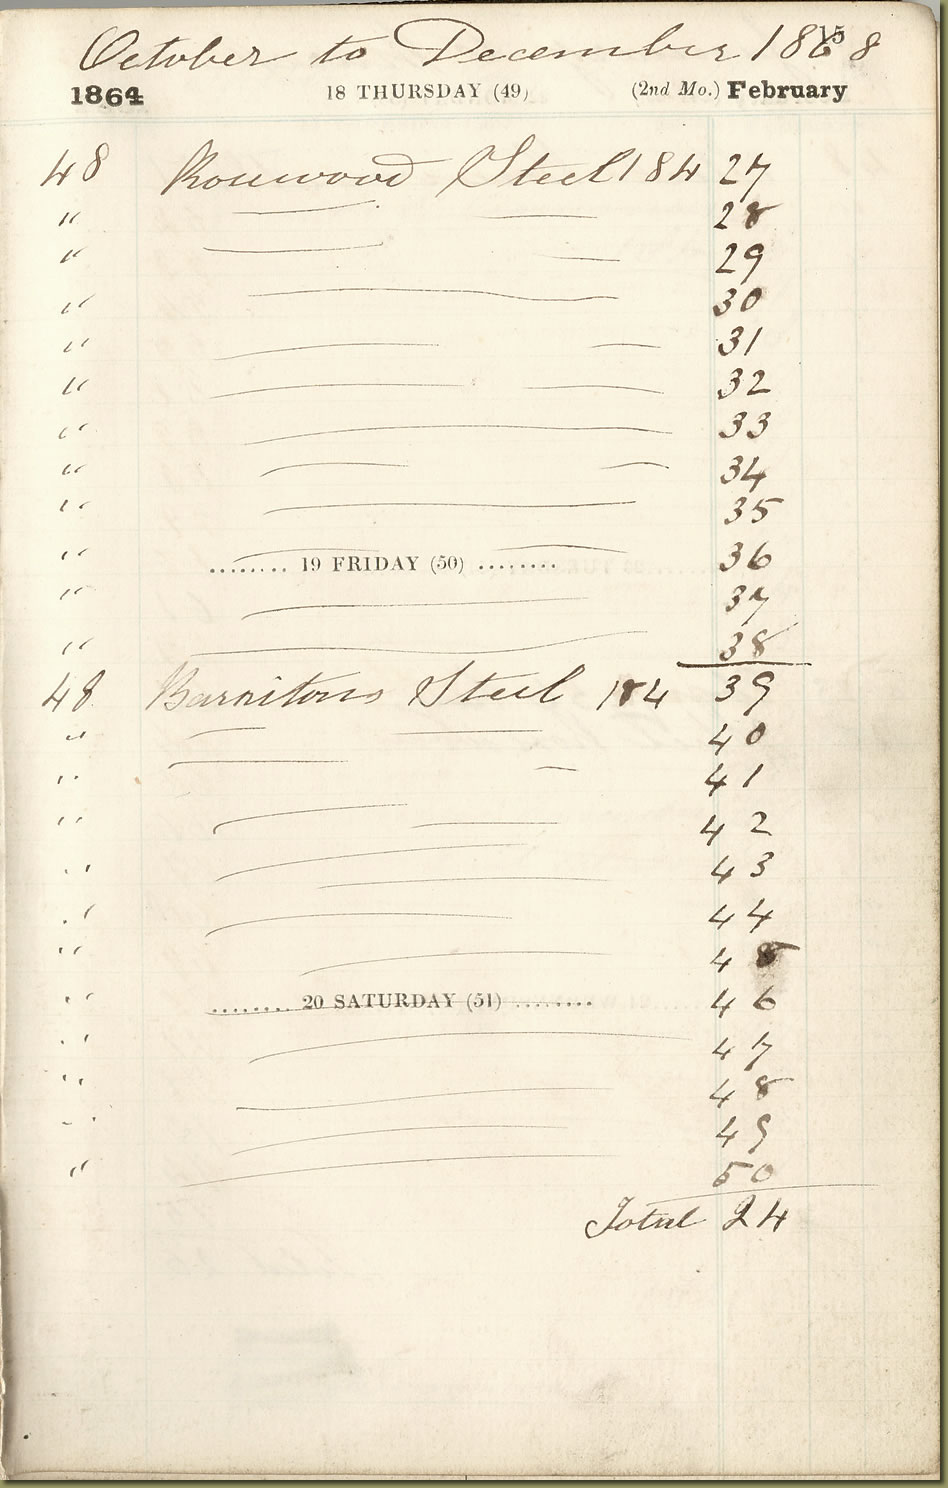 October to December 1868
15
1864 18 THURSDAY (49) (2nd Mo.) February
48 Rosewood Steel 184 27
" 28
" 29
" 30
" 31
" 32
" 33
" 34
" 35
" 36
........ 19 FRIDAY (50) ........
" 37
" 38
48 Barnitons Steel 184 39
" 40
" 41
" 42
" 43
" 44
" 45
" 46
........ 20 SATURDAY (51) ........
" 47
" 48
" 49
" 50
Total 24